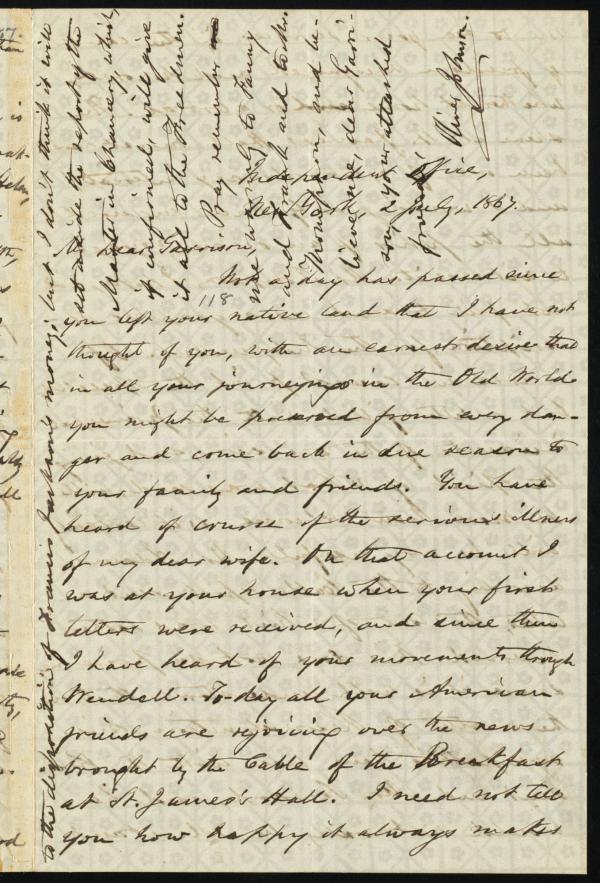 Independent Office,
New York, 2 July, 1867.
My dear Garrison,
Not a day has passed since
118
you left your native land that I have not
thought of you, with an earnest desire that
in all your journeyings in the Old World
you might be preserved from every dan-
ger and come back in due season to
your family and friends. You have
heard of course of the serious illness
of my dear wife. On that account I
was at your house when your first
letters were received, and since then
I have heard of your movements through
Wendell. To-day all your American
friends are rejoicing over the news
brought by the Cable of the Breakfast
at St. James's Hall. I need not tell
you how happy it always makes
to the disposition of Francis Jackson's money; but I don't think it will
set aside the report of the
Master in Chancery, which,
if confirmed, will give
it all to the Freedmen.
Pray remember
me warmly to Fanny
and Frank and to Mr.
Thompson, and be-
lieve me, dear Garri-
son, your attached
friend
Oliver Johnson.